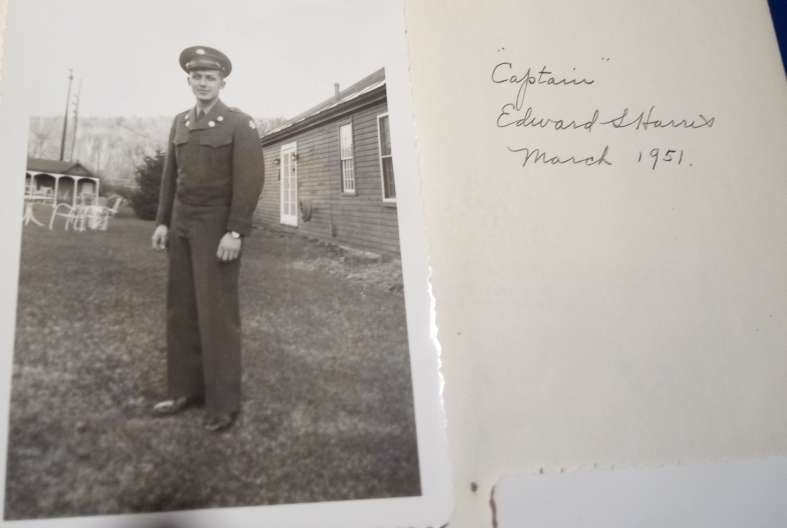 "Captain"
Edward S Harris
March 1951.